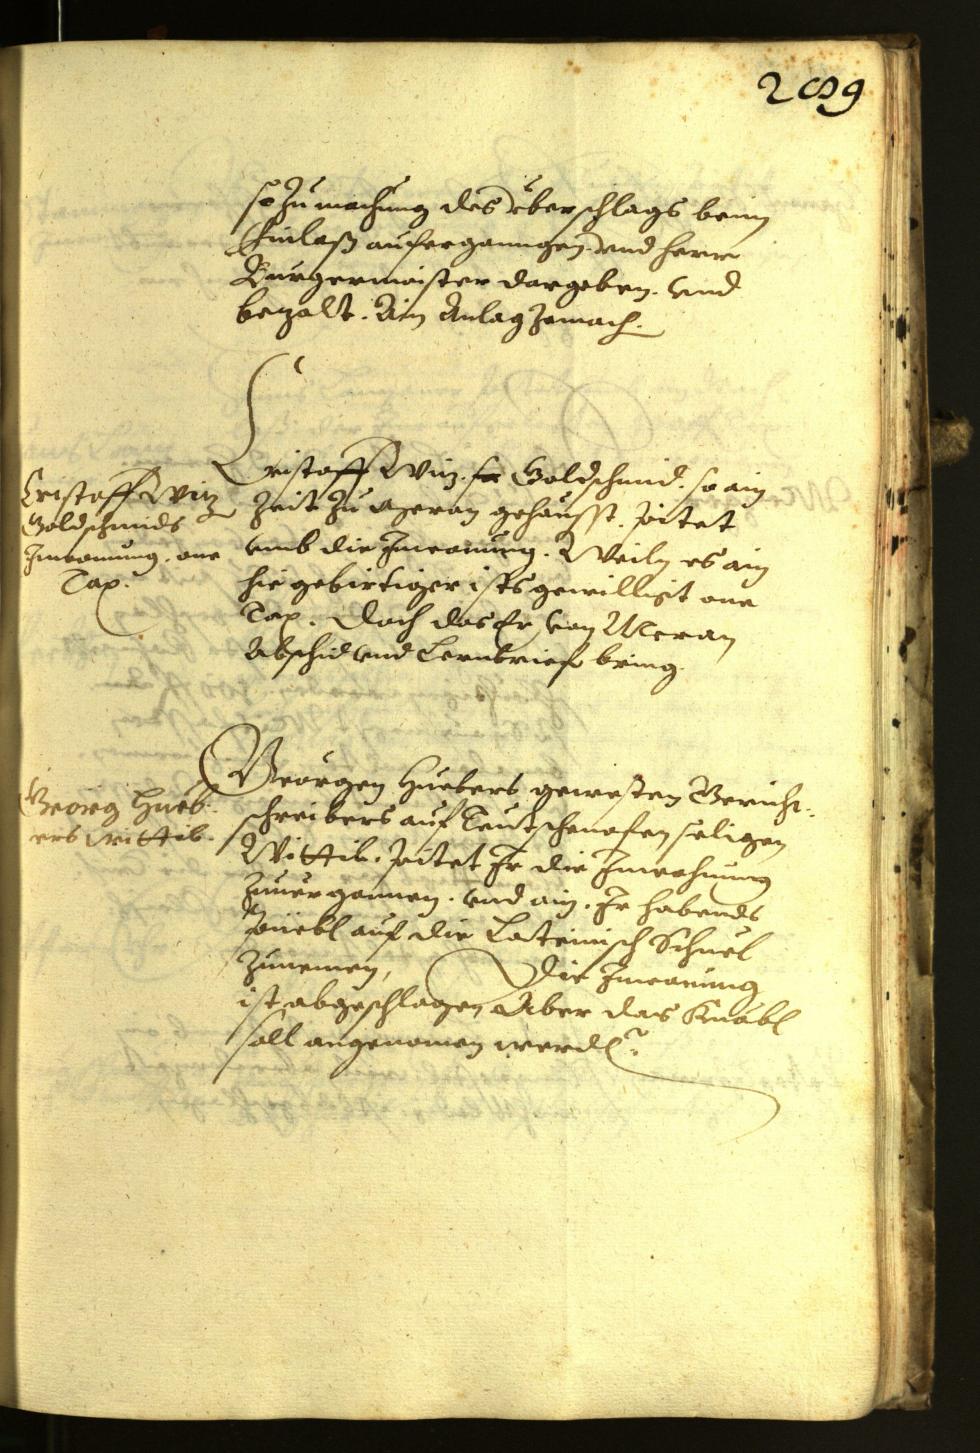 289
so zu machung des überschlags beim
Einlaß aufergangen. vnd herr
Burgermaister dargeben. vnd
bezalt. Ain Anlag zemach.
Cristoff Witz
Goldschmids
Inwonung. one
Tax.
Cristoff Witz. Goldschmid. so ain
Zeit zu Meran gehaust. pitet
vmb die Inwonung. Weiln es ain
hie gebirtiger ists gewilligt one
Tax. Doch das Er von Meran
Abschid vnd Lernbrief bring.
Georg Hueb
ers Wittib.
Georgen Huebers gewesten Gericht
schreibers auf Teutschenofen seligen
Wittib. pitet Ir die Inwohnung
zuuergonnen. vnd ain. Ir habends
püebl auf die Lateinisch Schuel
zunemen, Die Inwonung
ist abgeschlagen Aber das Knäbl
soll angenomen werdn.